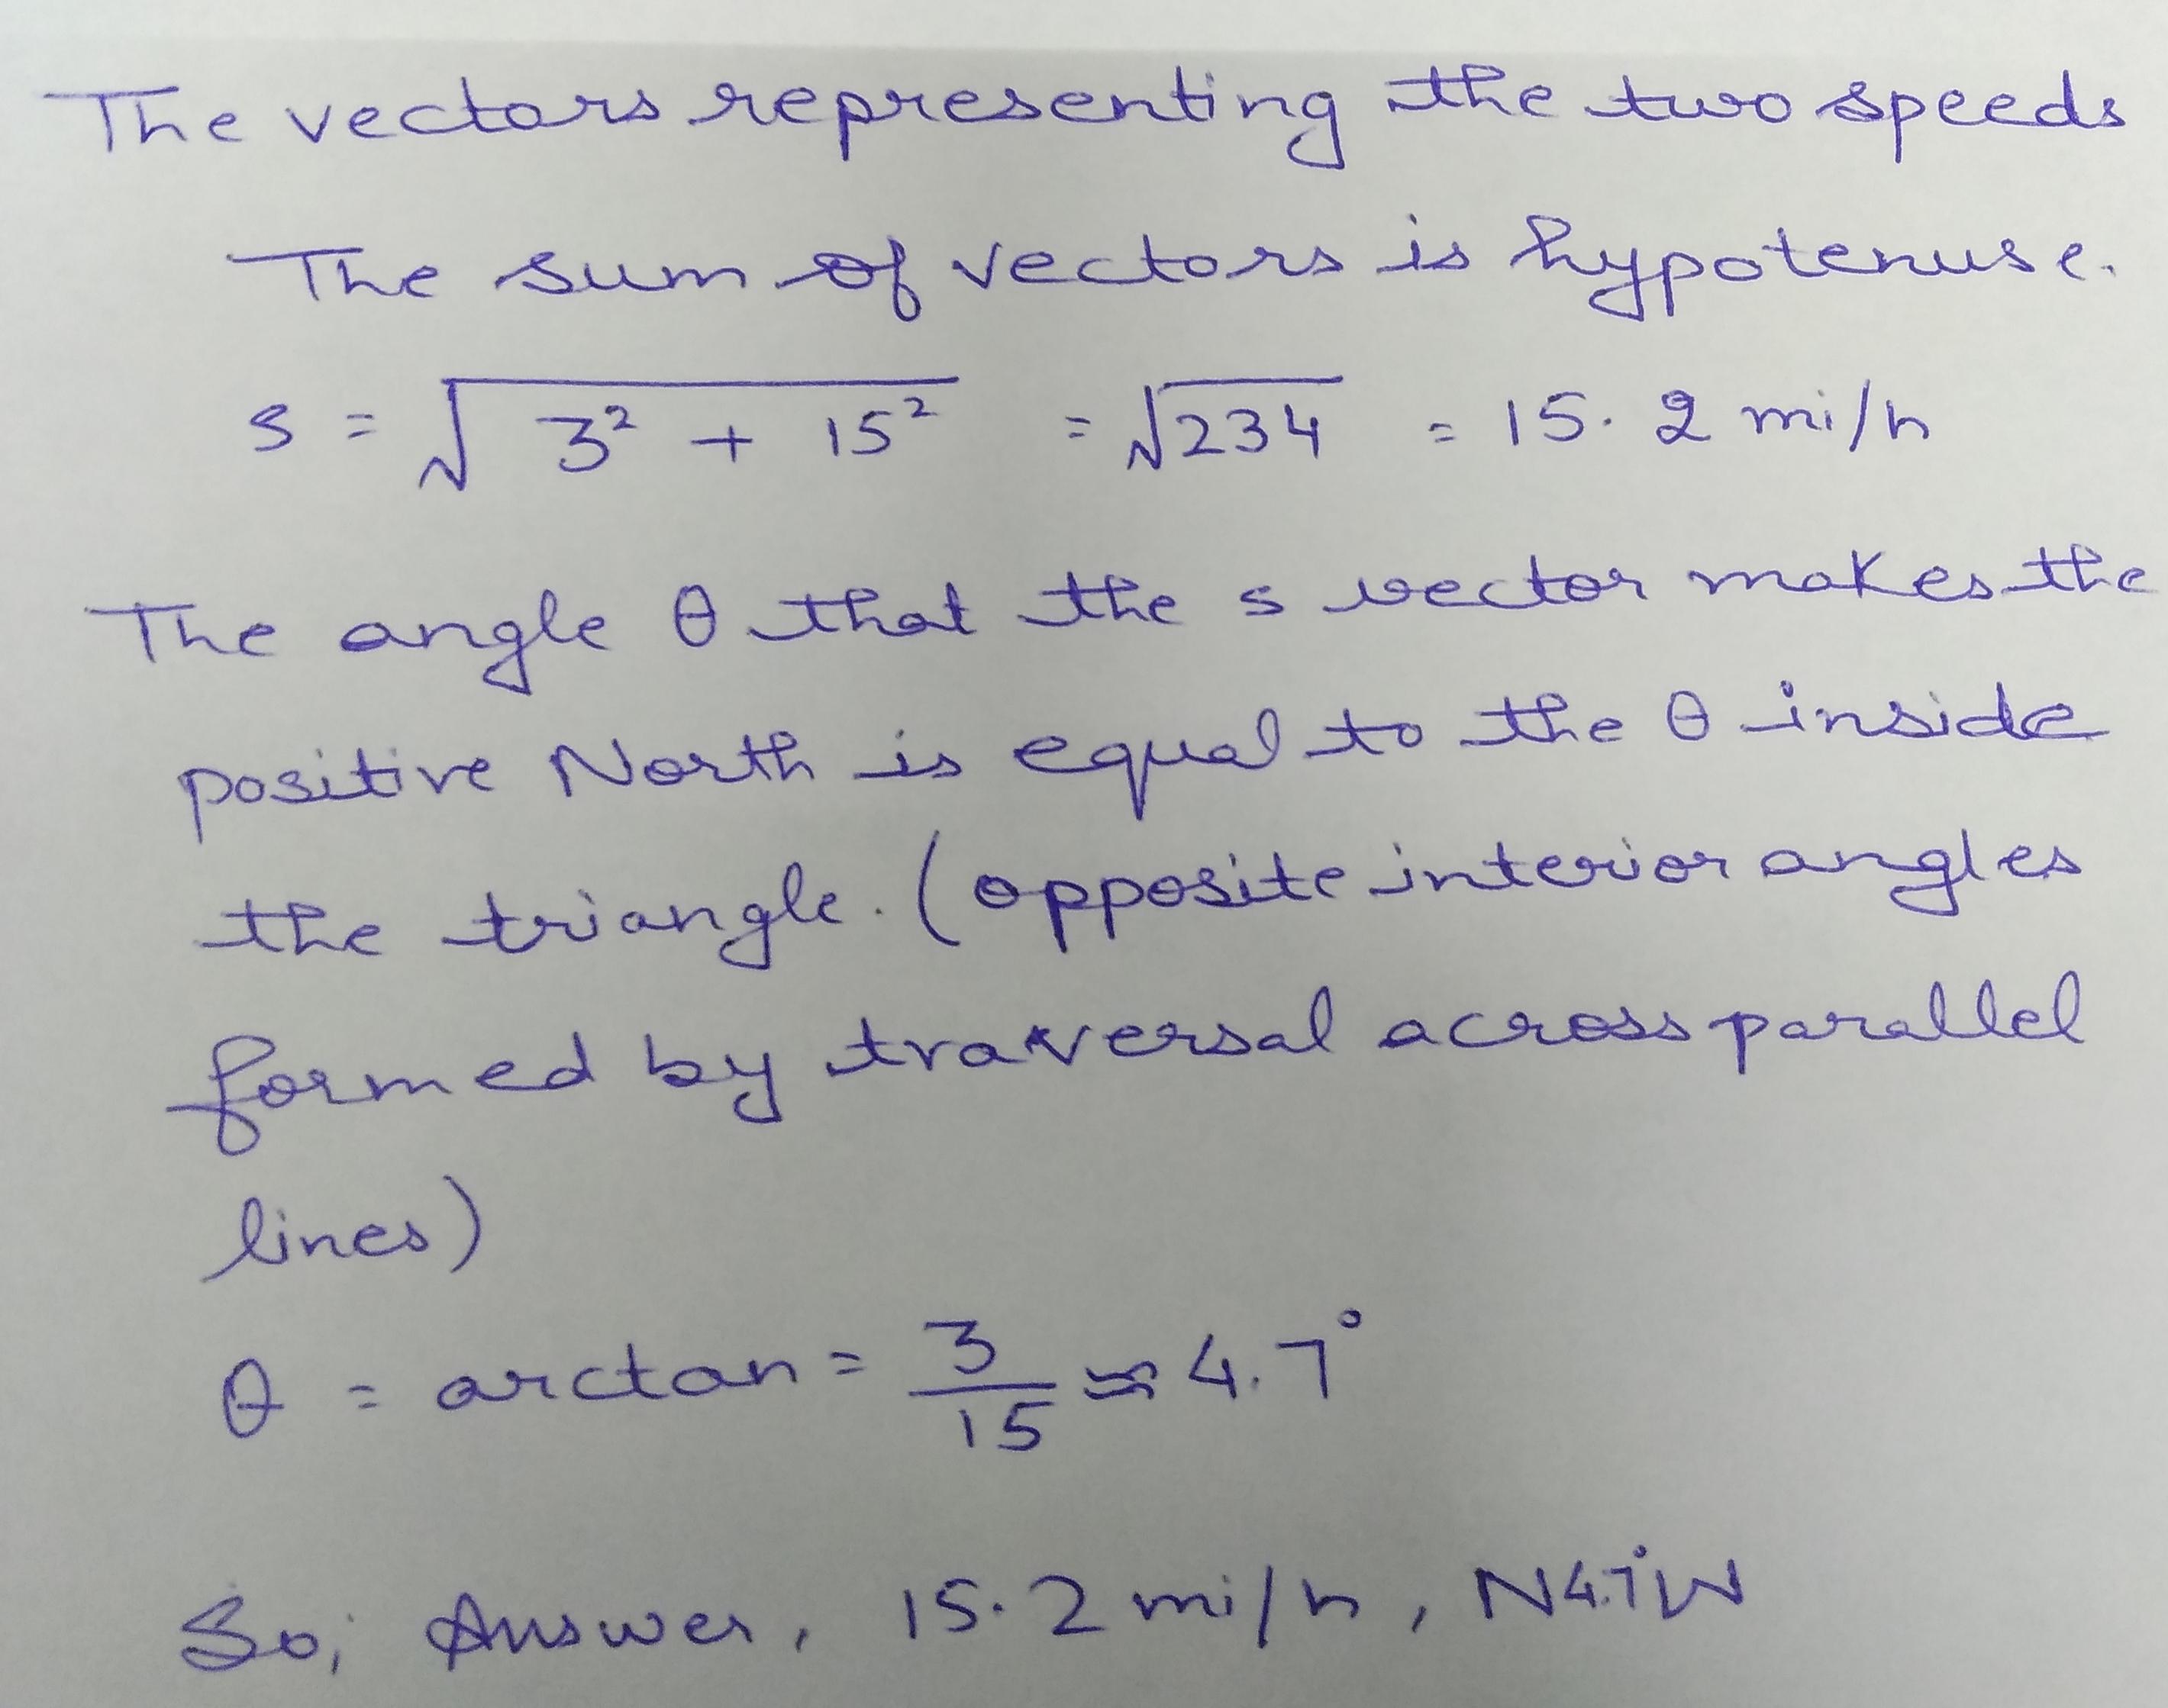 The vectors representing the two speeds
The sum of vectors is hypotenuse.
s = √3² + 15² = √234 = 15.2 mi/h
The angle θ that the s vector makes the
positive North is equal to the θ inside
the triangle. (opposite interior angles
formed by traversal across parallel
lines)
θ = arctan = 3/15 ≈ 4.7°
So, Answer, 15.2 mi/h, N4.7°W